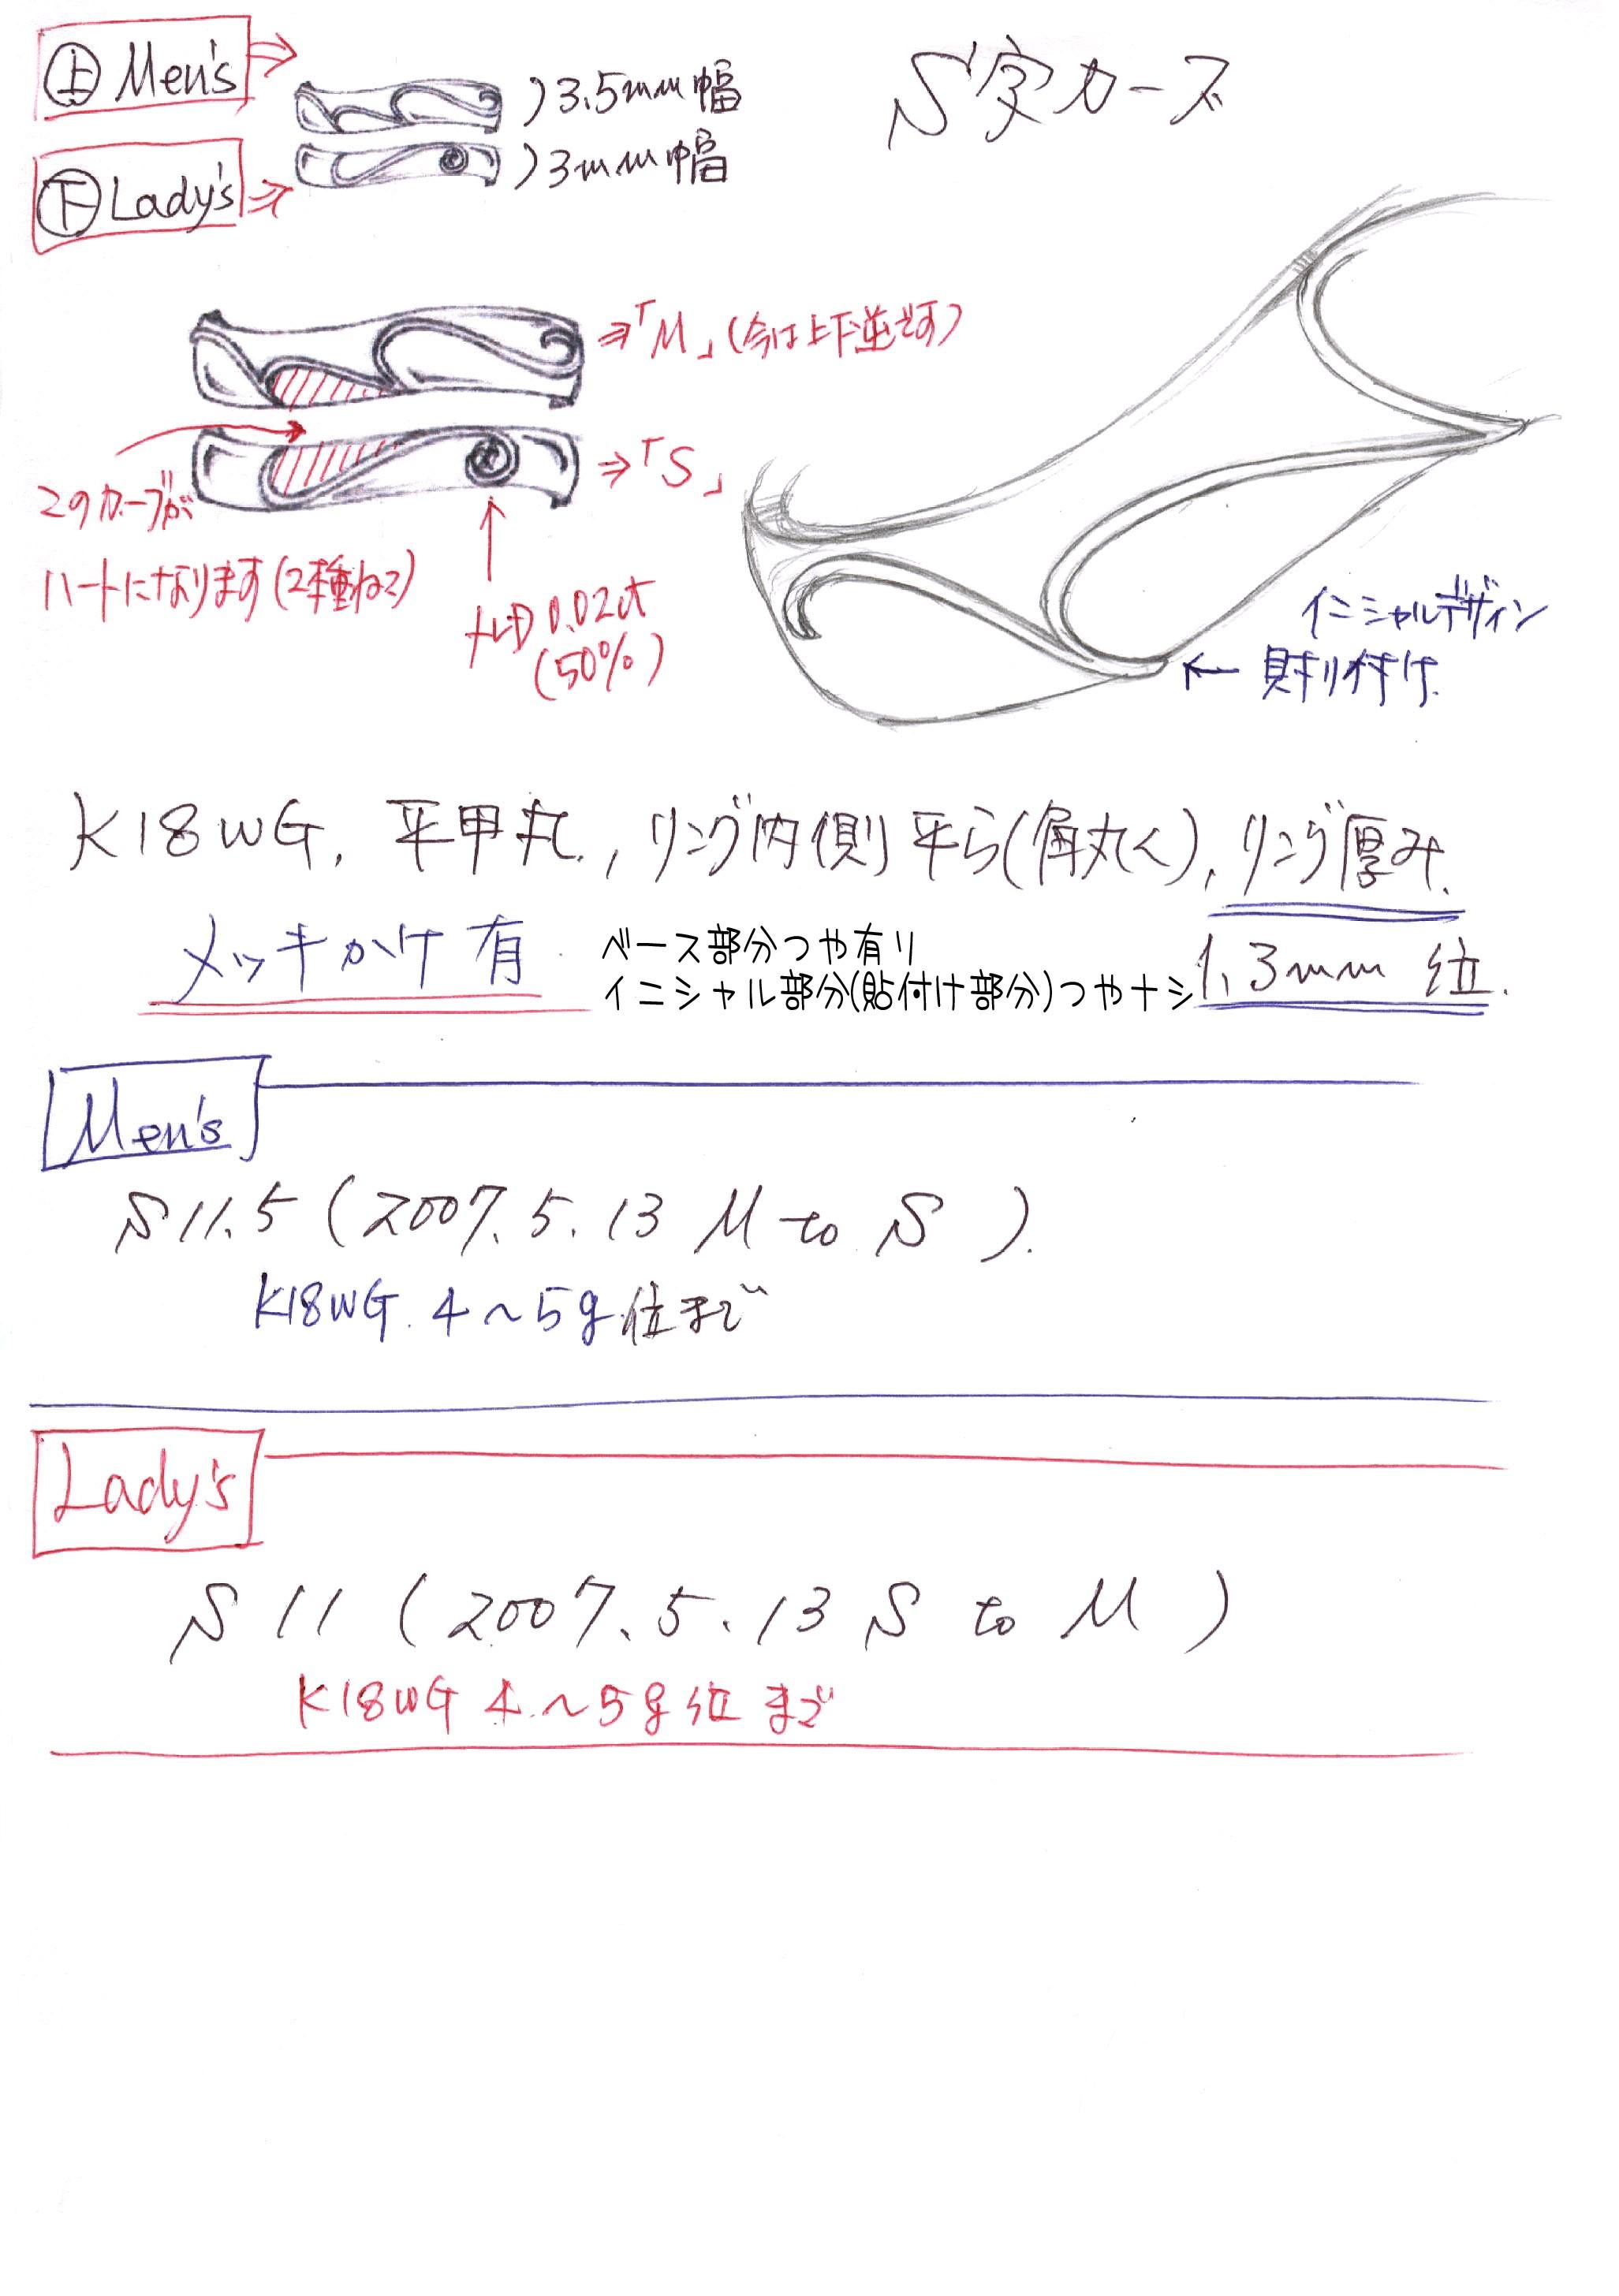 上 Men's
3.5mm幅
S字カーブ
下 Lady's
3mm幅
⇒「M」(今は上下逆です)
⇒「S」
このカーブが
ハートになります(2本重ねて)
メレD 0.02ct
(50%)
イニシャルデザイン
← 貼り付け
K18WG, 平甲丸, リング内側平ら(角丸く), リング厚み
1.3mm 位.
メッキかけ 有
ベース部分つや有り
イニシャル部分(貼付け部分)つやナシ
Men's
S11.5(2007.5.13 M to S).
K18WG 4～5g位まで
Lady's
S11(2007.5.13 S to M)
K18WG 4～5g位まで